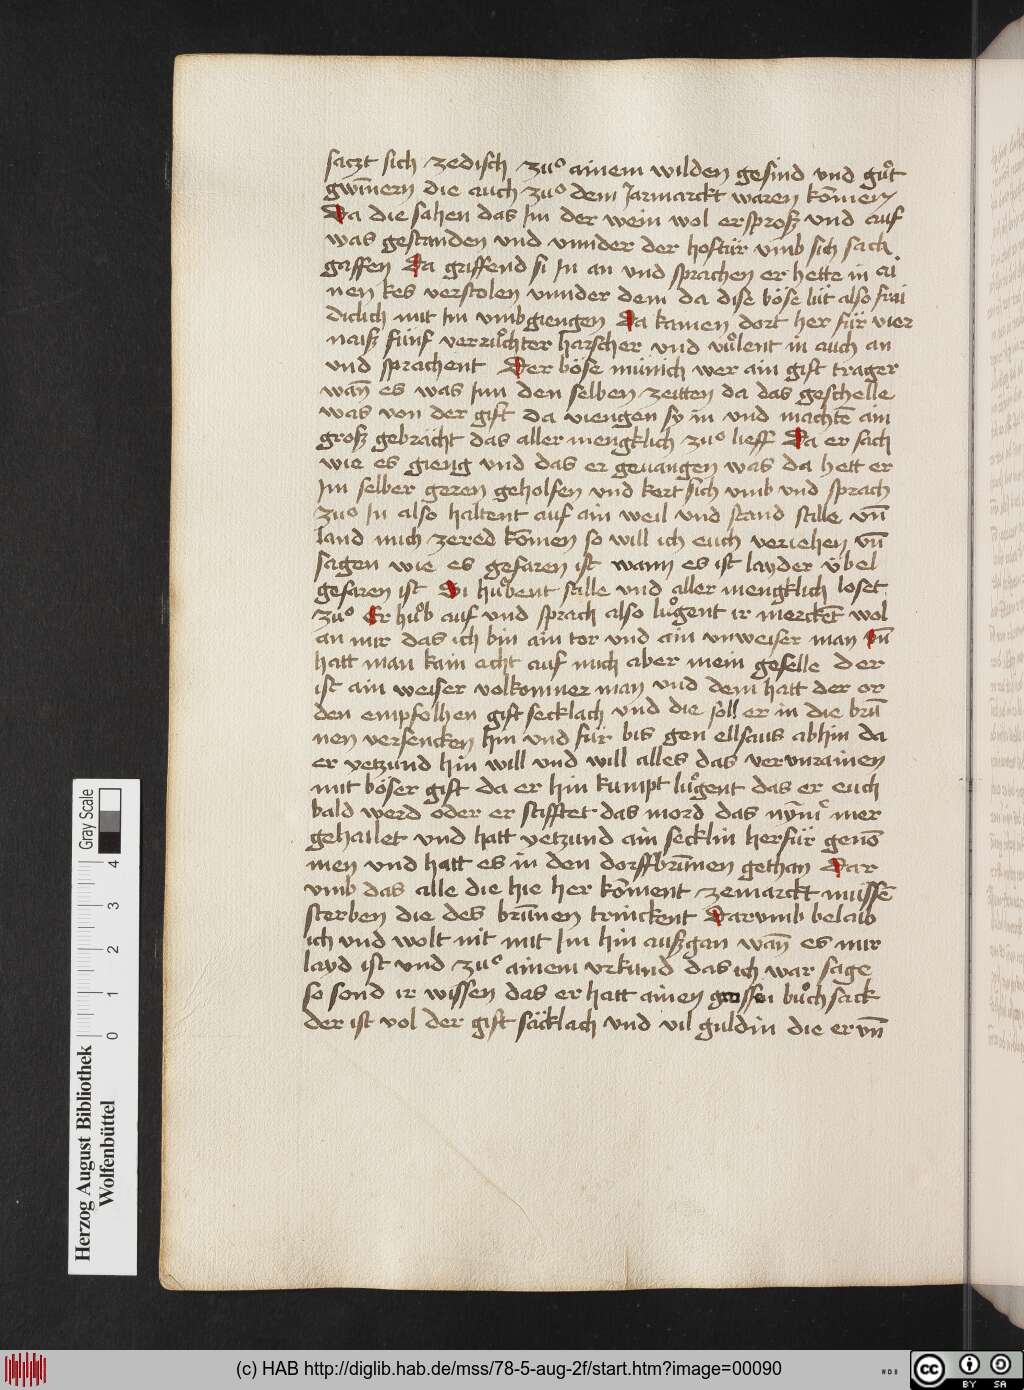 saczt sich zedisch zuͦ ainem wilden gesind vnd guͦt
gwīnern die auch zuͦ dem Jarmarckt waren kōmen
Da die sahen das Im der wein wol ersproß vnd auf
was gestanden vnd vnnder der hoftür vmb sich sach
gaffen Da griffend si In an vnd sprachen er hette in ai
nen kes verstolen vnnder dem da dise böse lüt also frai
dichlich mit Im vmbgiengen Da kamen dort her für vier
naiß fünf verruͦchter harscher vnd vuͦlent in auch an
vnd sprachent Der böse münich wer ain gift trager
wān es was Inn den selben zeitten da das geschelle
was von der gift da viengen sy in vnd machtē ain
groß gebrächt das aller mengklich zuͦ lieff Da er sach
wie es gieng vnd das er geuangen was da hett er
Im selber geren geholfen vnd kert sich vmb vnd sprach
zuͦ In also haltent auf ain weil vnd stand stille vn̄
land mich zered kōmen so will ich euch veriehen vn̄
sagen wie es gefaren ist wann es ist layder übel
gefaren ist Di huͦbent stille vnd aller mengklich loset
zuͦ Er huͦb auf vnd sprach also luͦgent ir merckēt wol
an mir das ich bin ain tor vnd ain vnweiser man vn̄
hatt man kain acht auf mich aber mein geselle der
ist ain weiser volkomner man vnd dem hatt der or
den empfolhen gift secklach vnd die soll er in die brū
nen versencken hin vnd für bis gen ellsaus abhin da
er yetzund hin will vnd will alles das verunrainen
mit böser gift da er hin kumpt luͦgent das er euch
bald werd oder er stifftet das mord das nym̄er mer
gehailet vnd hatt yetzund ain secklin herfür genō
men vnd hatt es in den dorffbrūnen gethan Dar
vmb das alle die hie her kōment zemarckt müssē
sterben die des brūnen trinckent Darvmb belaib
ich vnd wolt nit mit Im hin außgan wān es mir
layd ist vnd zuͦ ainem vrkund das ich war sage
so sond ir wissen das er hatt ainen grossen buͦchsack
der ist vol der gift säcklach vnd vil guldin die er vn̄
Herzog August Bibliothek
Wolfenbüttel
Gray Scale
0 1 2 3 4
(c) HAB http://diglib.hab.de/mss/78-5-aug-2f/start.htm?image=00090
cc BY SA